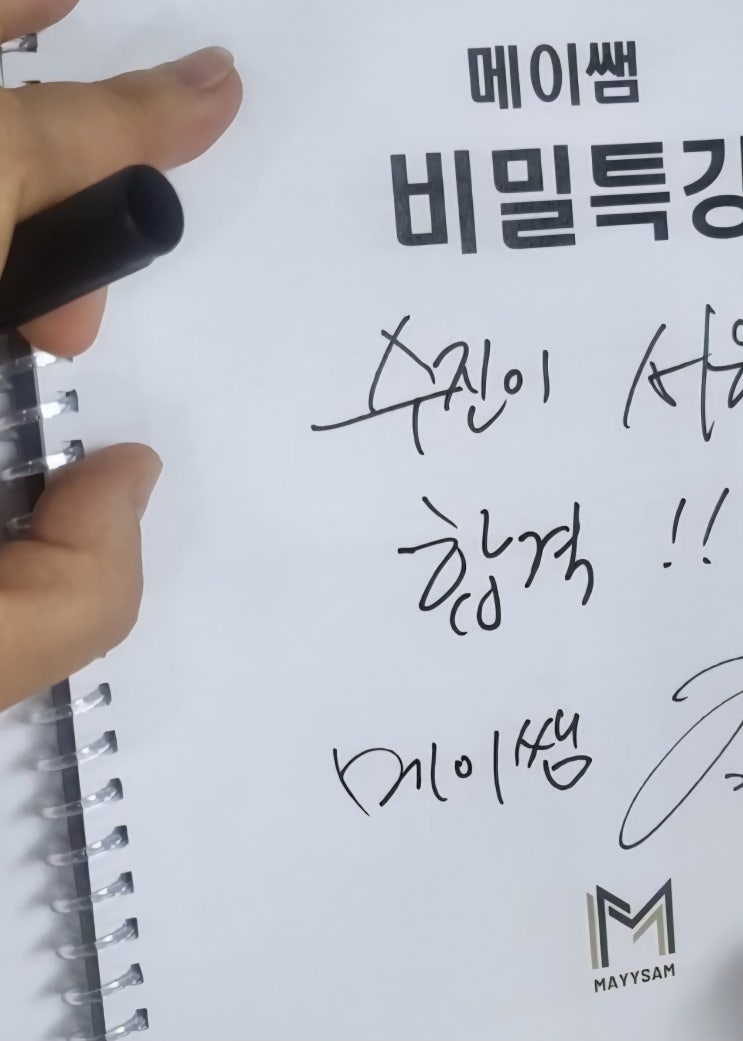 메이쌤
비밀특강
수진이
합격 !!
메이쌤
MAYYSAM